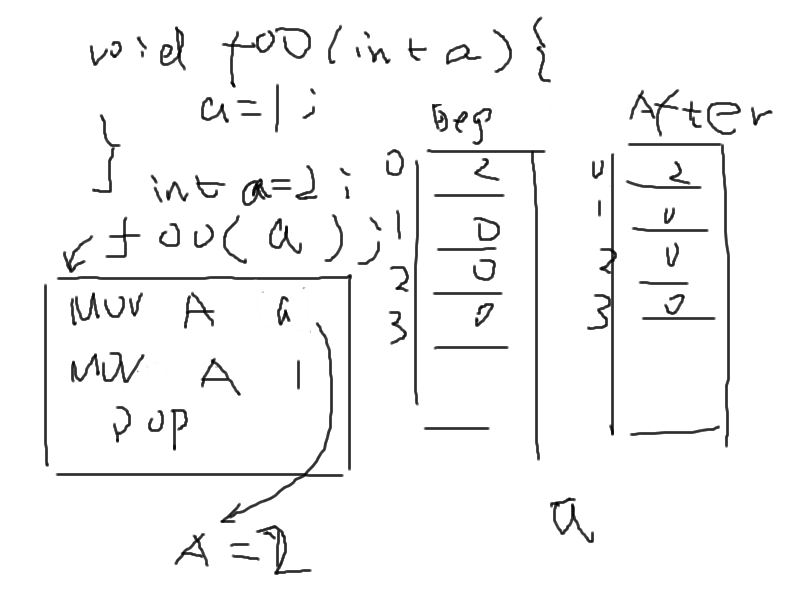 void foo(int a){
a=1;
}
int a=2;
foo(a);
MOV A a
MOV A 1
POP
A=2
Beg
0 2
1 0
2 0
3 0
After
0 2
1 0
2 0
3 0
a